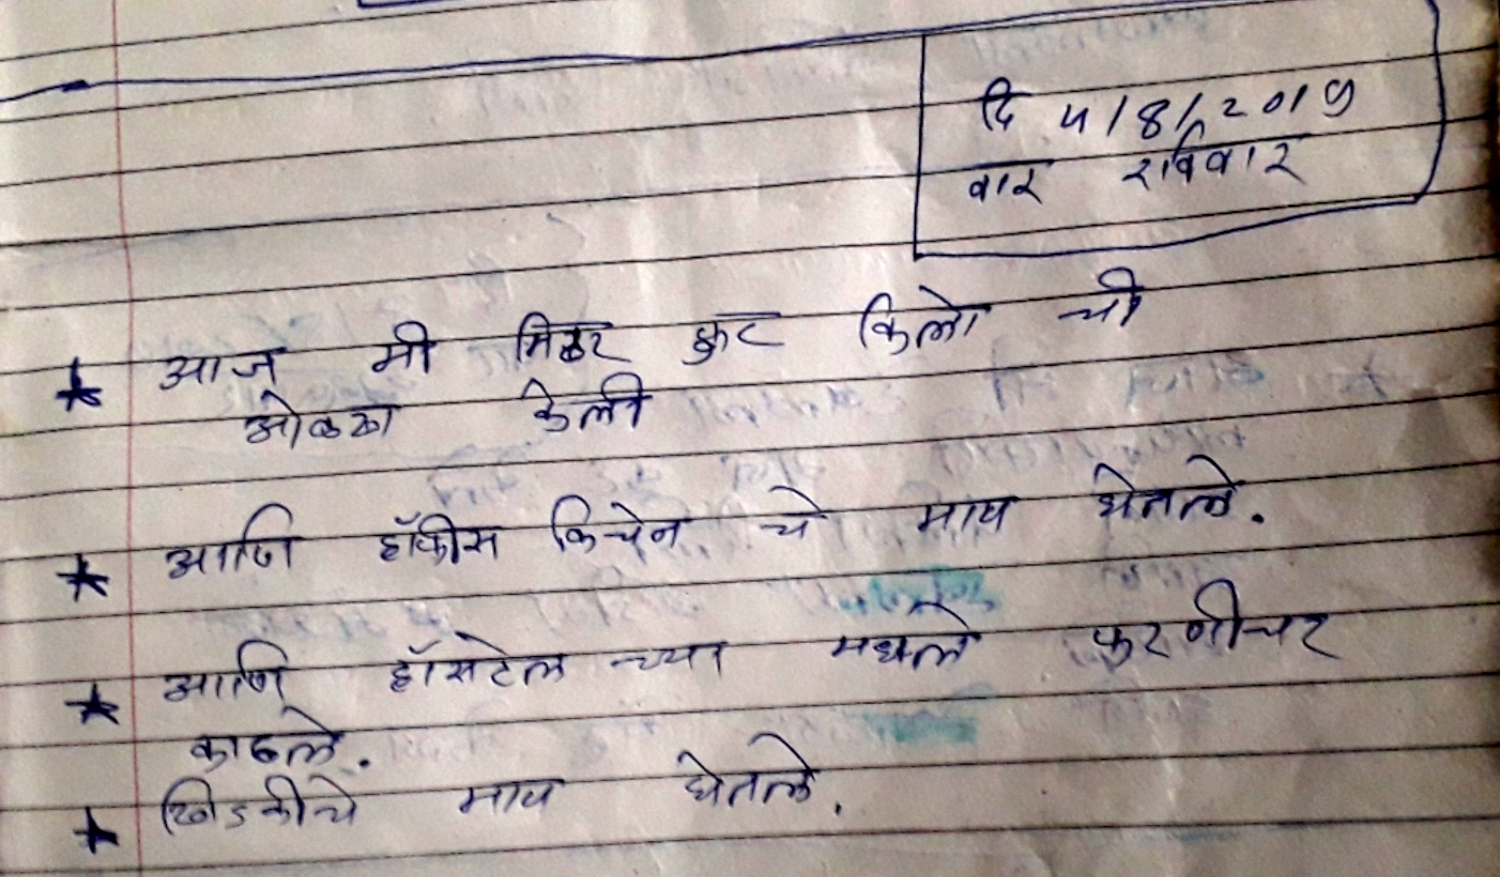 दि 4/8/2019
वार रविवार
★ आज मी मिटर फुट किलो ची
ओळख केली
★ आणि हॉफीस किचेन चे माप घेतले.
★ आणि हॉसटेल च्या मधले फुरणीचर
काढले.
★ खिडकीचे माप घेतले.